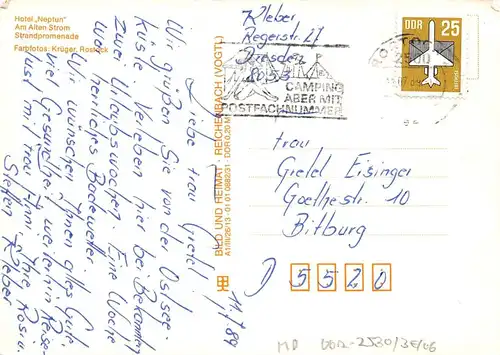 Hotel „Neptun"
Am Alten Strom
Strandpromenade
Farbfotos: Krüger, Rostock
Kleber
Regerstr. 27
Dresden
8053
Liebe Frau Gretel!
Wir grüßen Sie von der Ostsee-
küste, verleben hier bei Bekannten
zwei Urlaubswochen. Eine Woche
herrliches Badewetter.
Wir wünschen Ihnen alles Gute
viel Gesundheit, weiterhin Reise-
lust mit Frau
Ihre Rosi u.
Steffen Kleber
11.7.89
BILD UND HEIMAT · REICHENBACH (VOGTL)
A1/III/26/13 · 01 01 0882/31 · DDR 0,20 M
CAMPING
ABER MIT
POSTFACHNUMMER
DDR 25
Frau
Gretel Eisinger
Goethestr. 10
Bitburg
D 5520